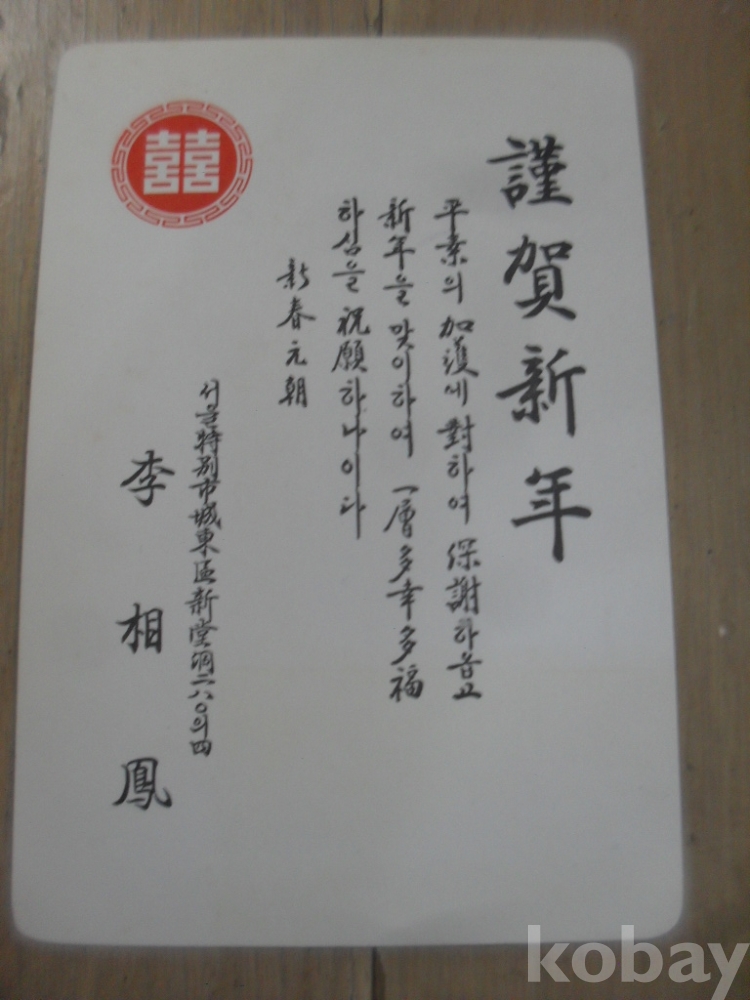 謹賀新年
平素의 加護에 對하여 深謝하옵고
新年을 맞이하여 一層 多幸多福
하심을 祝願하나이다
新春元朝
서울特別市城東區新堂洞二八○의四
李相鳳
囍
kobay